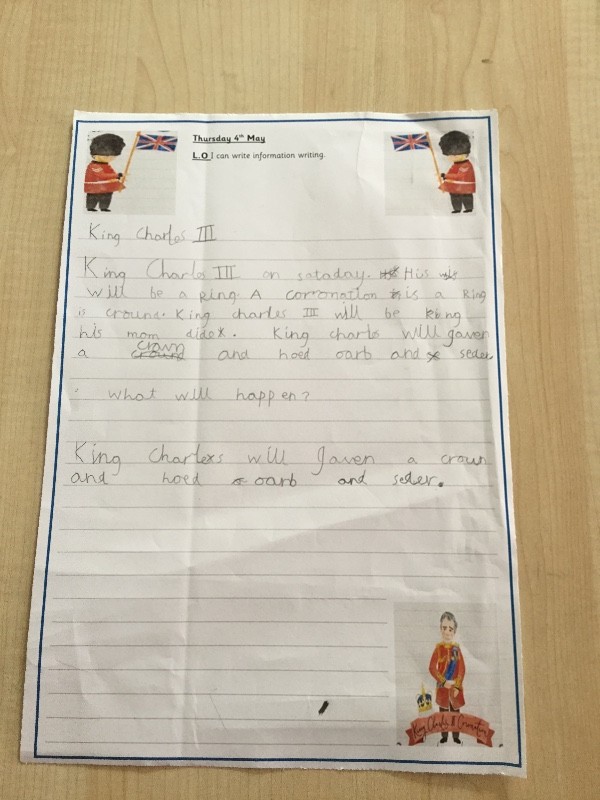 Thursday 4th May
L.O I can write information writing.
King Charles III
King Charle III on sataday. His
will be a ring. A coronation is a Ring
is cround. King charles III will be king
his mom dide. King charls will gaven
a crown and hoed oarb and seder
what will happen?
King Charles will gaven a crown
and hoed oarb and seder.
King Charles III Coronation